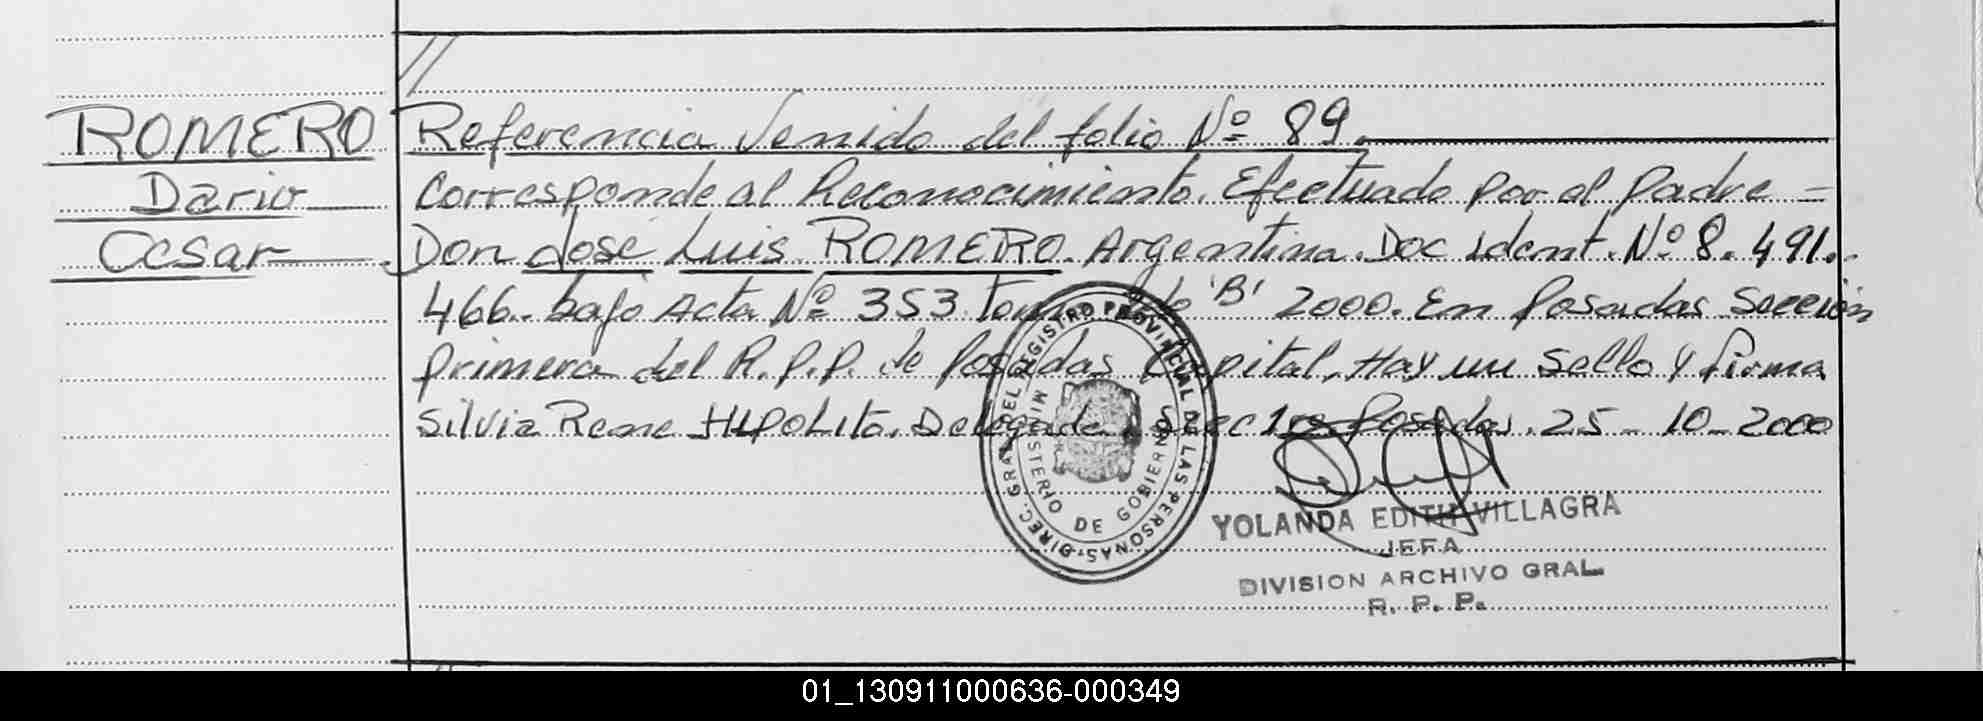 ROMERO
Dario
Cesar
Referencia Venido del folio Nº 89.
Corresponde al Reconocimiento. Efectuado por el padre =
Don José Luis ROMERO. Argentina. Doc Ident. Nº 8.491.
466. bajo Acta Nº 353 tomo 'B' 2000. En Posadas Sección
primera del R.P.P. de Posadas Capital, Hay un Sello y firma
Silvia Rene HIPOLITO. Delegada Secc 1ra Posadas. 25-10-2000
DIREC. GRAL. DEL REGISTRO PROVINCIAL DE LAS PERSONAS
MINISTERIO DE GOBIERNO
YOLANDA EDITH VILLAGRA
JEFA
DIVISION ARCHIVO GRAL.
R. P. P.
01_130911000636-000349